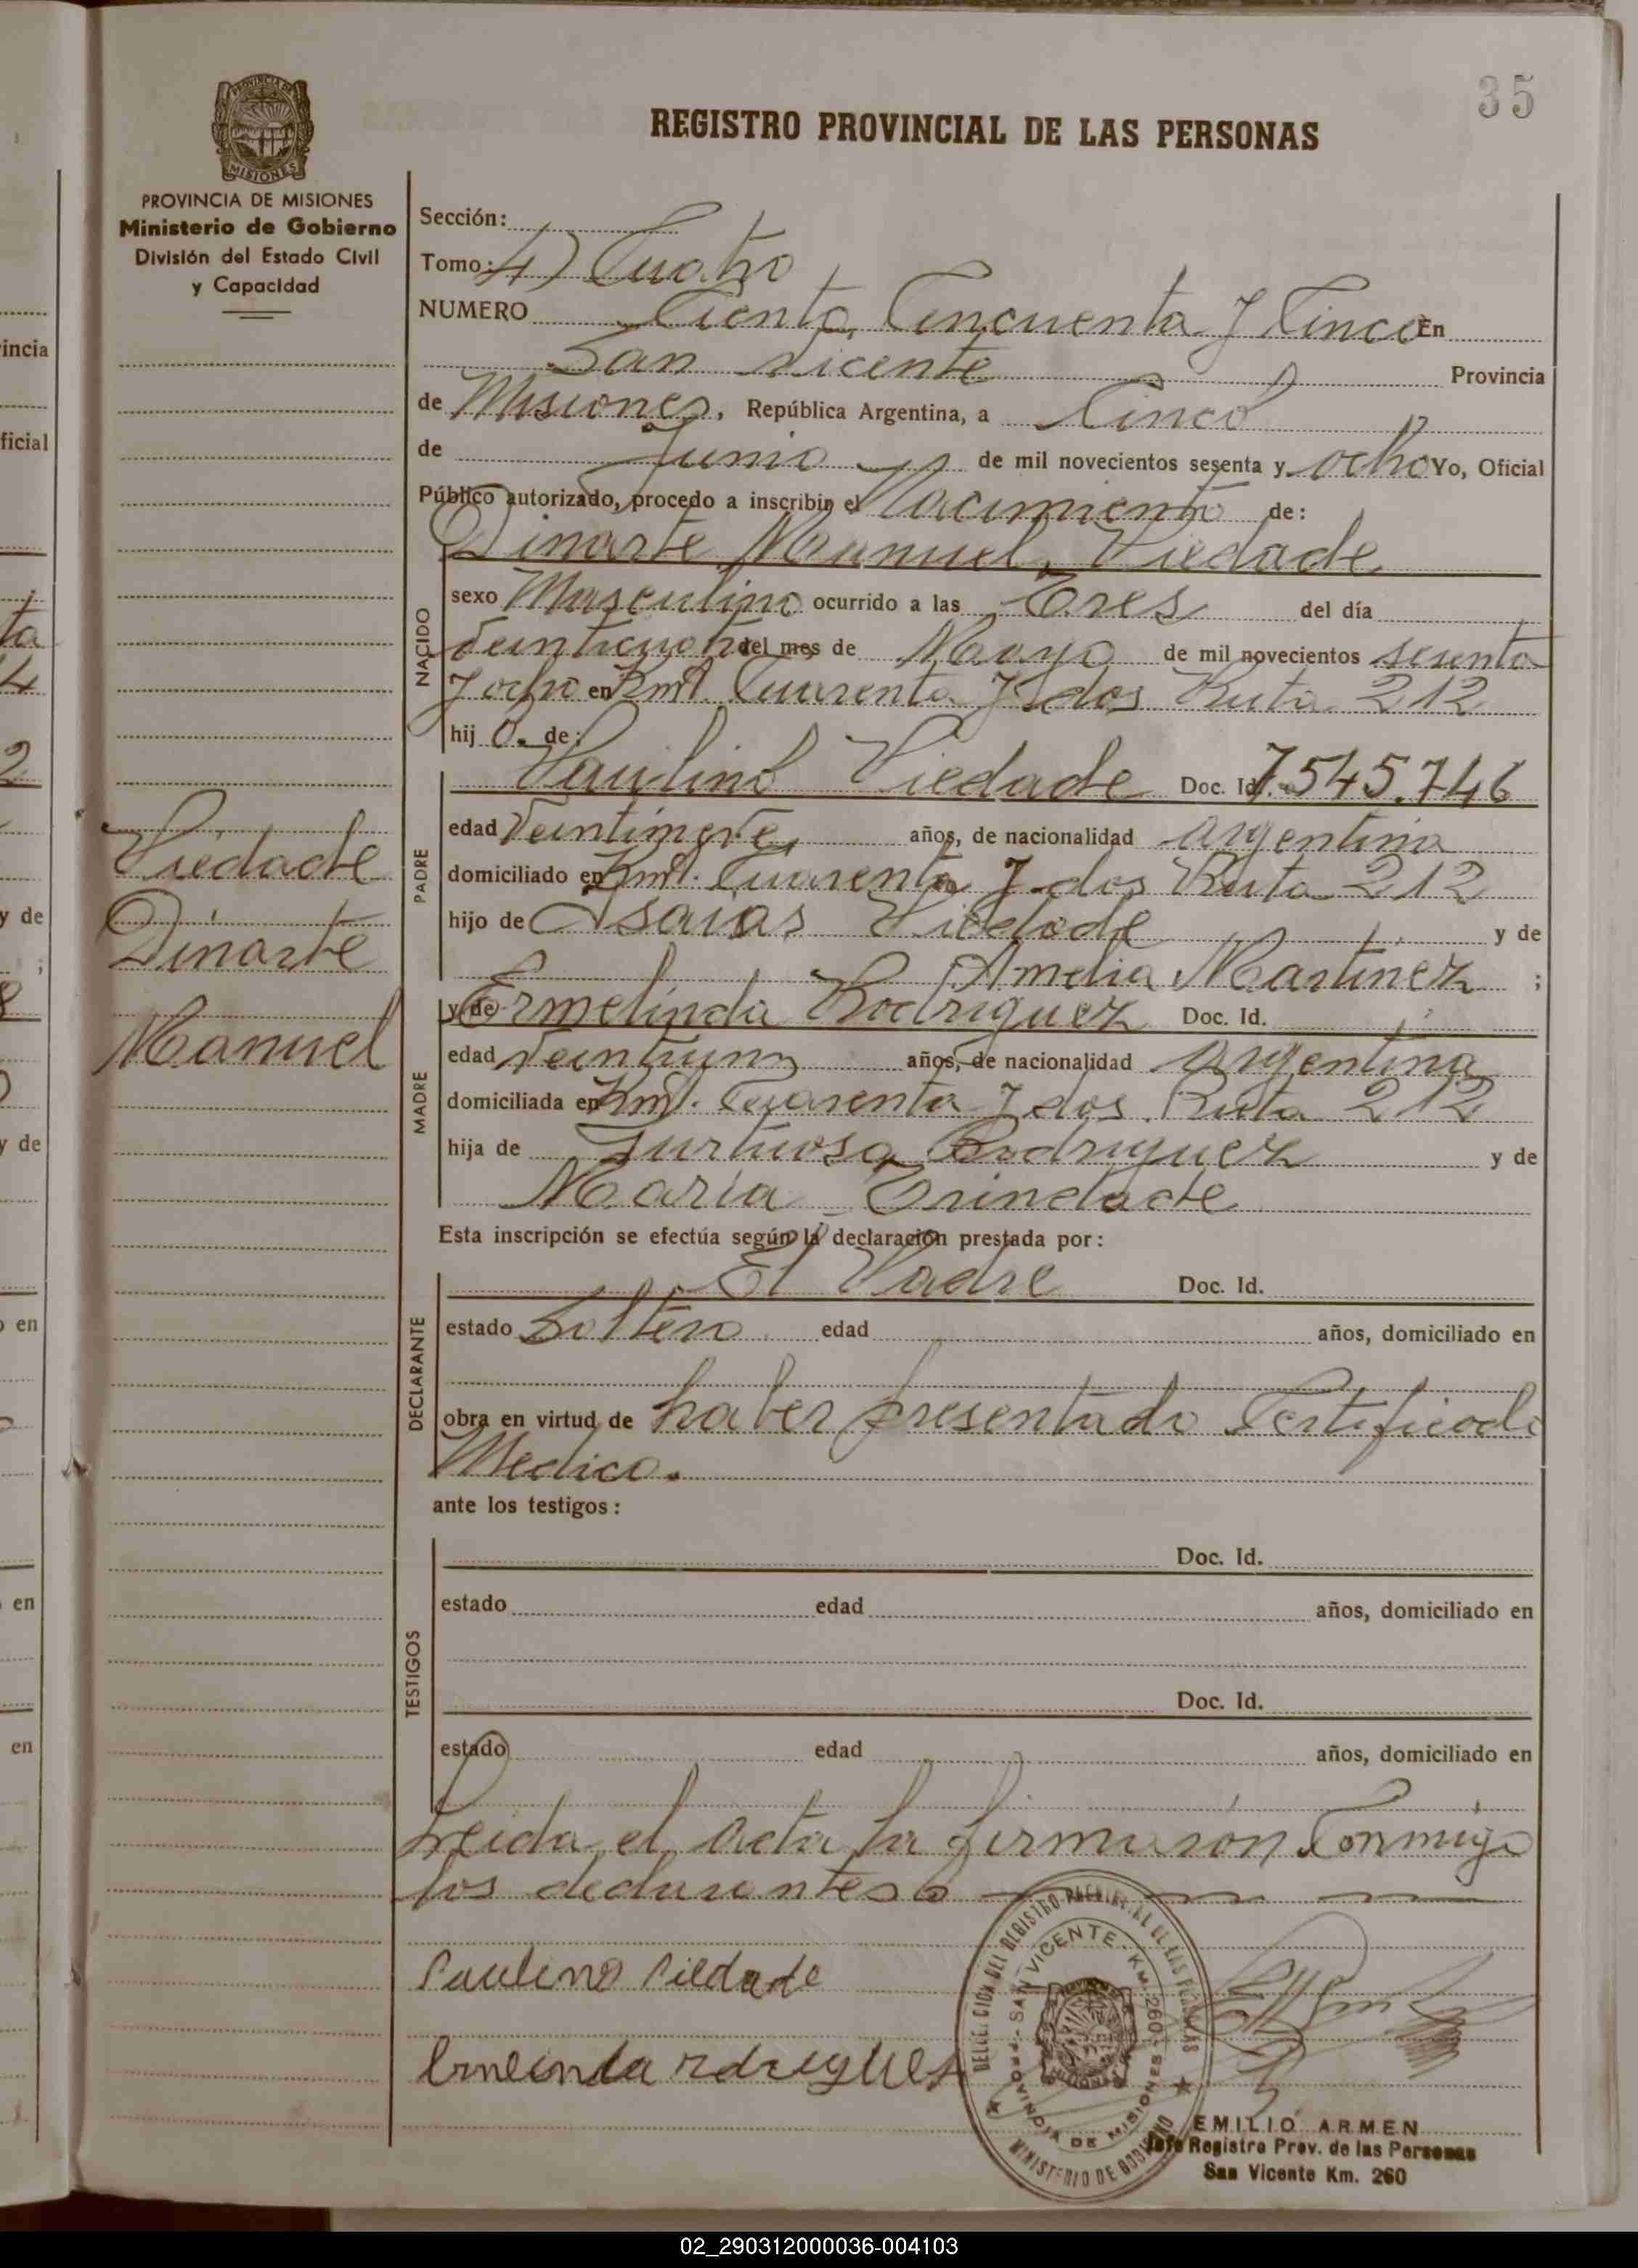 35
REGISTRO PROVINCIAL DE LAS PERSONAS
PROVINCIA DE MISIONES
Ministerio de Gobierno
División del Estado Civil
y Capacidad
Piedade
Dinarte
Manuel
Sección:
Tomo: 4) Cuatro
NUMERO Ciento Cincuenta y Cinco En
San Vicente Provincia
de Misiones, República Argentina, a Cinco
de Junio de mil novecientos sesenta y ocho Yo, Oficial
Público autorizado, procedo a inscribir el Nacimiento de:
Dinarte Manuel Piedade
NACIDO
sexo Masculino ocurrido a las Tres del día
del mes de Mayo de mil novecientos sesenta
y ocho en Kmt. Cuarenta y dos Ruta 212
hijo de:
PADRE
Paulino Piedade Doc. Id. 7.545.746
edad años, de nacionalidad argentina
domiciliado en Kmt. Cuarenta y dos Ruta 212
hijo de Isaias Piedade y de
Amelia Martinez ;
MADRE
y de Ermelinda Rodriguez Doc. Id.
edad veintiuno años, de nacionalidad argentina
domiciliada en Kmt. Cuarenta y dos Ruta 212
hija de Rodriguez y de
Maria Trindade
Esta inscripción se efectúa según la declaración prestada por:
DECLARANTE
El Padre Doc. Id.
estado Soltero edad años, domiciliado en
obra en virtud de haber presentado Certificado
Medico.
ante los testigos:
TESTIGOS
Doc. Id.
estado edad años, domiciliado en
Doc. Id.
estado edad años, domiciliado en
Leida el acta la firmarón Conmigo
los declarantes
Paulino Piedade
DELEGACION DEL REGISTRO PROVINCIAL DE LAS PERSONAS
SAN VICENTE - KM. 260 - PROVINCIA DE MISIONES
MINISTERIO DE GOBIERNO
EMILIO ARMEN
Jefe Registro Prov. de las Personas
San Vicente Km. 260
02_290312000036-004103